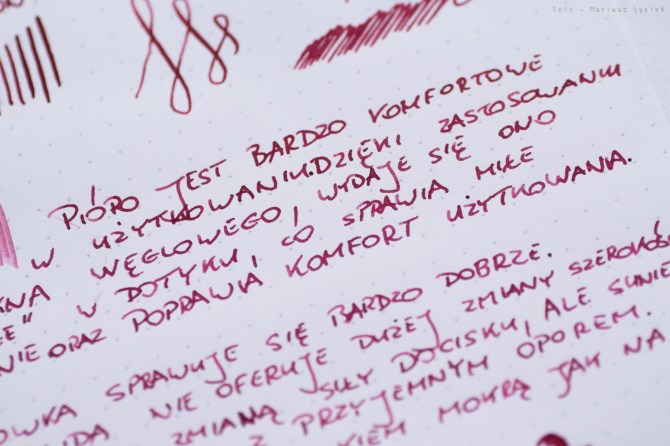 Foto - Mariusz Łysiak
PIÓRO JEST BARDZO KOMFORTOWE
W UŻYTKOWANIU. DZIĘKI ZASTOSOWANIU
WĘGLOWEGO, WYDAJE SIĘ ONO
W DOTYKU, CO SPRAWIA MIŁE
ORAZ POPRAWIA KOMFORT UŻYTKOWANIA.
SPRAWUJE SIĘ BARDZO DOBRZE.
NIE OFERUJE DUŻEJ ZMIANY
ZMIANĄ SIŁY DOCISKU, ALE SUNIE
Z PRZYJEMNYM OPOREM.
MOKRĄ JAK NA